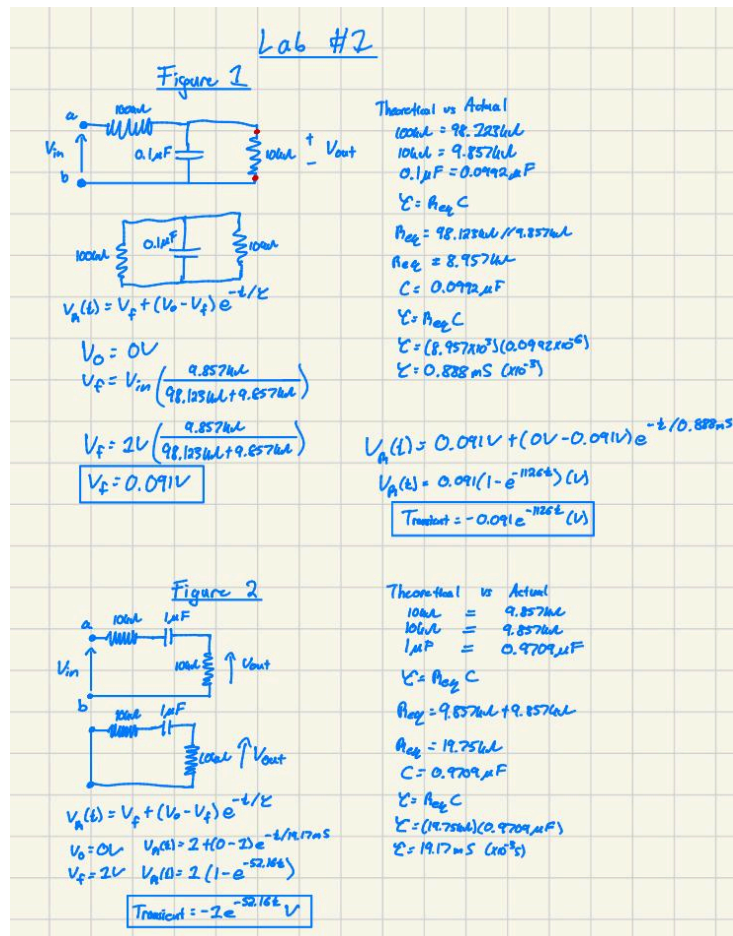 Lab #2
Figure 1
100kΩ
a
Vin
0.1μF
10kΩ
+
-
Vout
b
100kΩ
0.1μF
10kΩ
V_A(t) = V_f + (V_0 - V_f) e^{-t/τ}
V_0 = 0V
V_f = Vin (9.857kΩ / (98.123kΩ + 9.857kΩ))
V_f = 1V (9.857kΩ / (98.123kΩ + 9.857kΩ))
V_f = 0.091V
Theoretical vs Actual
100kΩ = 98.123kΩ
10kΩ = 9.857kΩ
0.1μF = 0.0992μF
τ = Req C
Req = 98.123kΩ // 9.857kΩ
Req = 8.957kΩ
C = 0.0992μF
τ = Req C
τ = (8.957x10^3)(0.0992x10^-6)
τ = 0.888 mS (x10^-3)
V_A(t) = 0.091V + (0V - 0.091V) e^{-t/0.888mS}
V_A(t) = 0.091(1 - e^{-1126t}) (V)
Transient = -0.091e^{-1126t} (V)
Figure 2
a
10kΩ
1μF
Vin
10kΩ
Vout
b
10kΩ
1μF
10kΩ
Vout
V_A(t) = V_f + (V_0 - V_f) e^{-t/τ}
V_0 = 0V V_A(t) = 1 + (0 - 1) e^{-t/19.17mS}
V_f = 1V V_A(t) = 1 (1 - e^{-52.16t})
Transient = -1e^{-52.16t} V
Theoretical vs Actual
10kΩ = 9.857kΩ
10kΩ = 9.857kΩ
1μF = 0.9709μF
τ = Req C
Req = 9.857kΩ + 9.857kΩ
Req = 19.75kΩ
C = 0.9709μF
τ = Req C
τ = (19.75kΩ)(0.9709μF)
τ = 19.17mS (x10^-3 s)